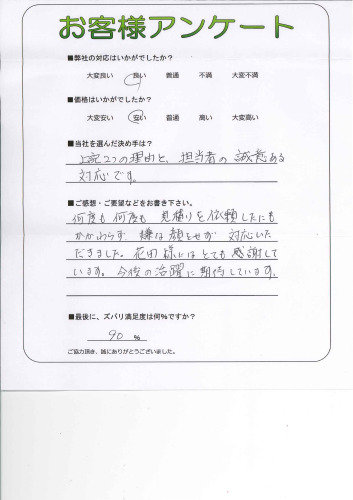 お客様アンケート
■弊社の対応はいかがでしたか？
大変良い 良い 普通 不満 大変不満
■価格はいかがでしたか？
大変安い 安い 普通 高い 大変高い
■当社を選んだ決め手は？
上記2つの理由と、担当者の誠意ある
対応です。
■ご感想・ご要望などをお書き下さい。
何度も何度も見積りを依頼したにも
かかわらず 嫌な顔をせず 対応いた
だきました。花田様にはとても感謝して
います。今後の活躍に期待しています。
■最後に、ズバリ満足度は何％ですか？
90 %
ご協力頂き、誠にありがとうございました。